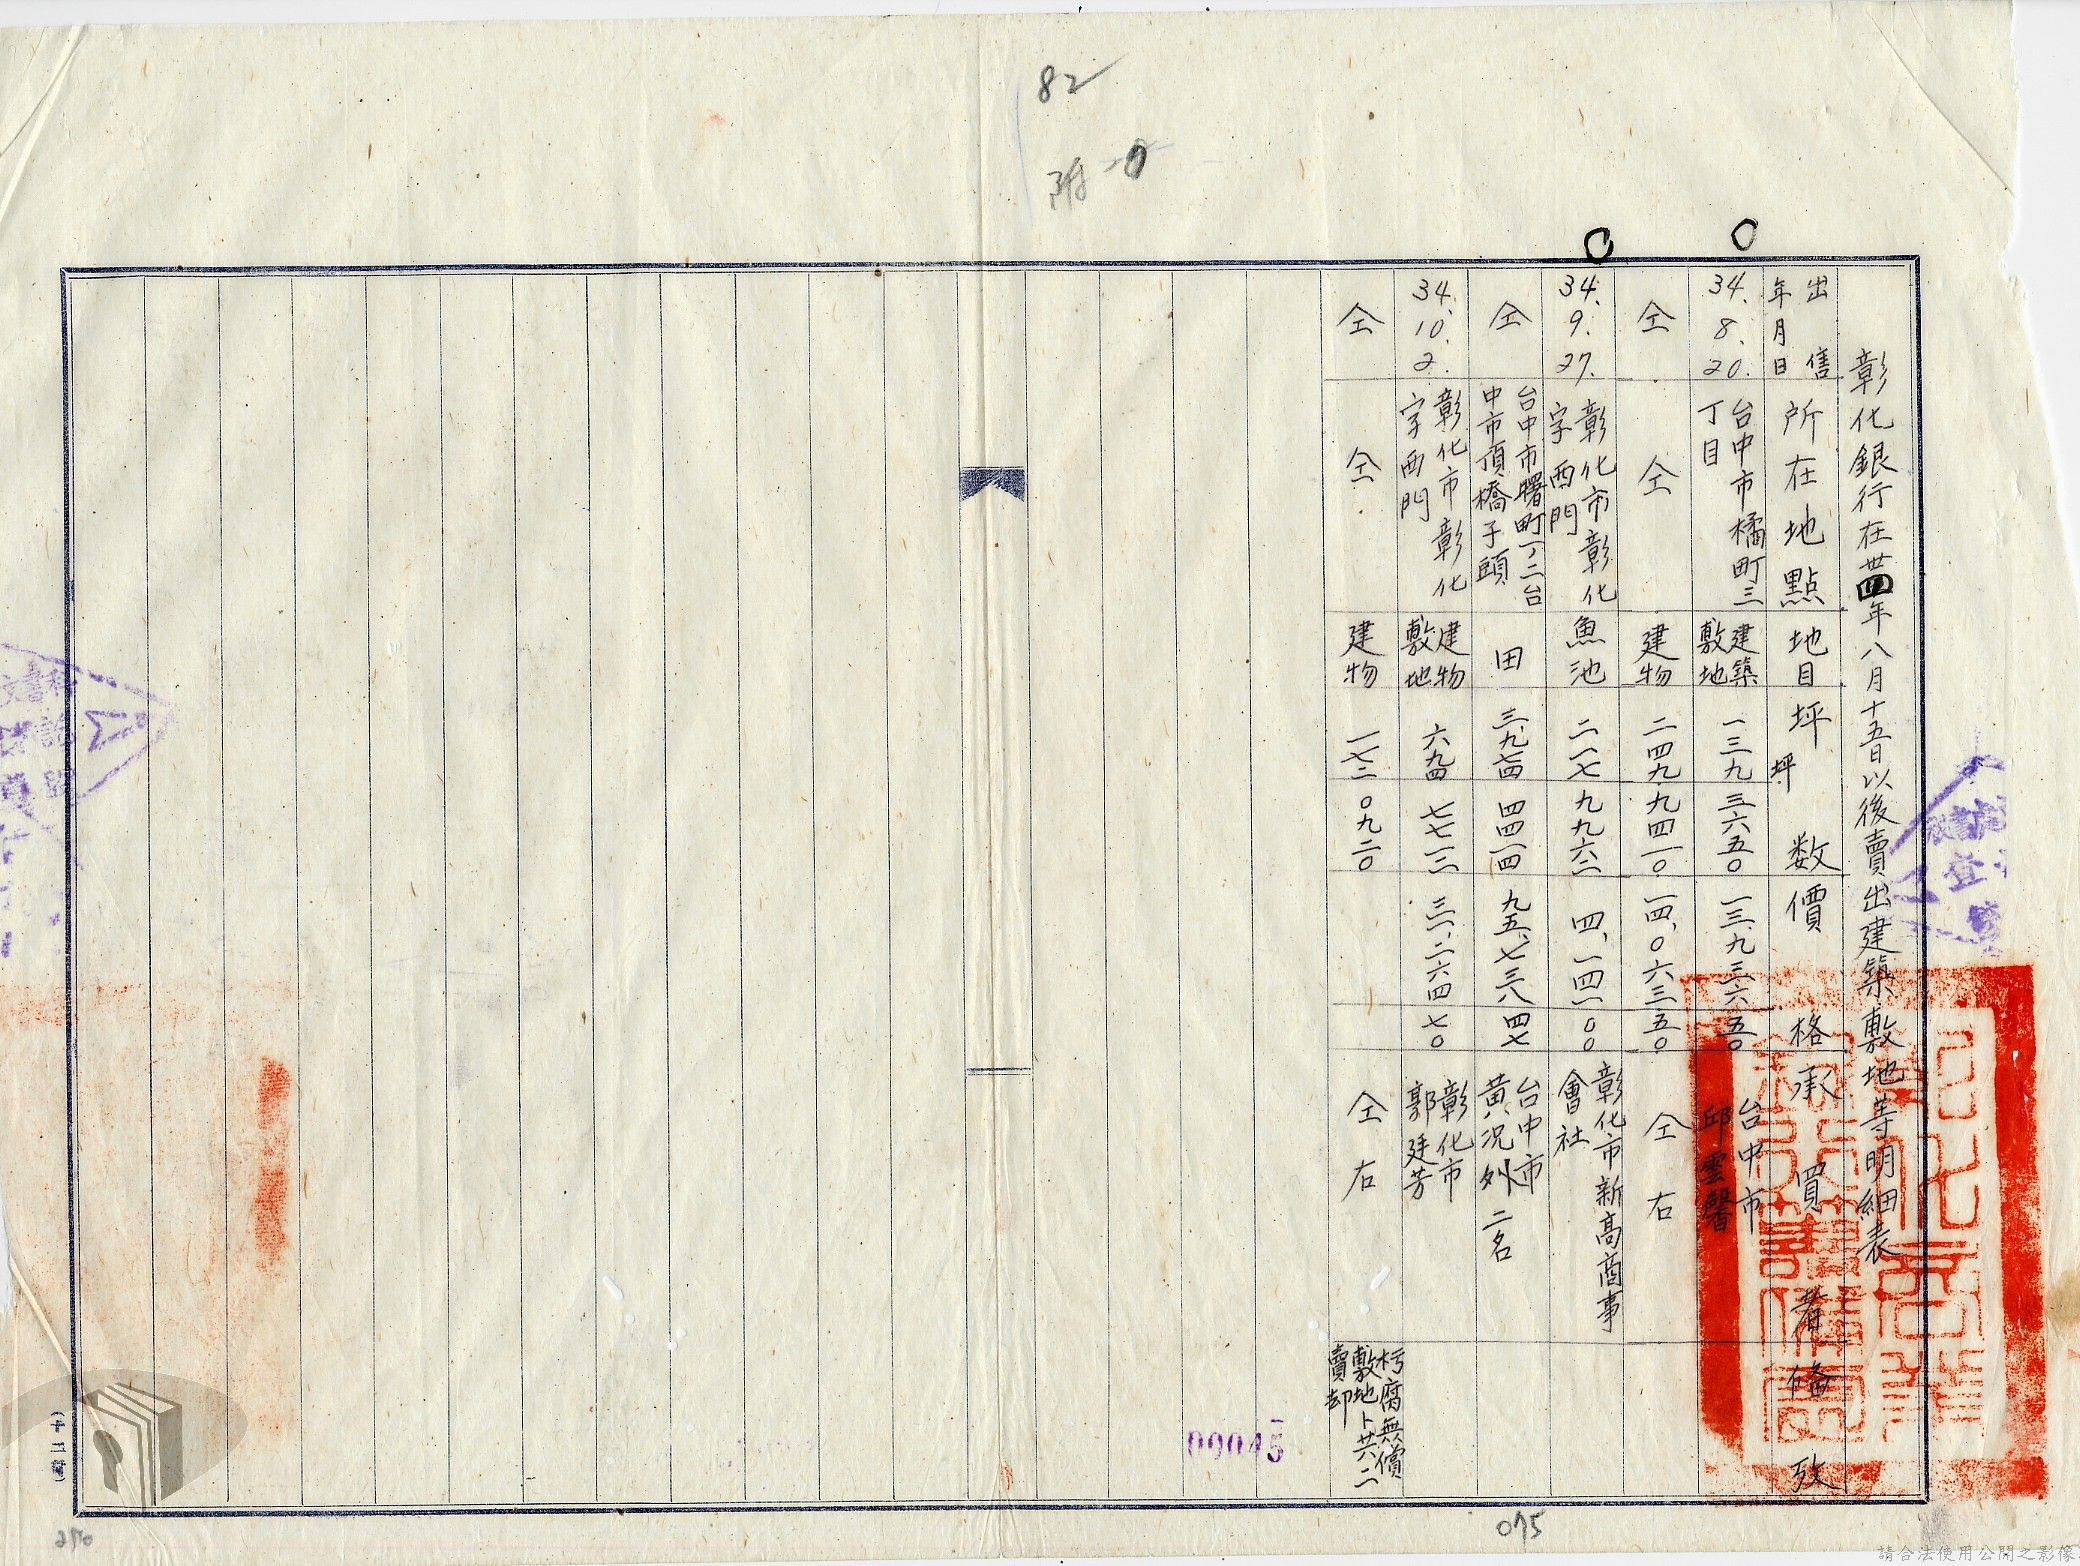 82
附
彰化銀行在卅四年八月十五日以後賣出建築敷地等明細表
出售
年月日
所在地點
地目
坪数
坪
價格
承買者
備攷
34.8.20.
台中市橘町三
丁目
建築
敷地
一三九
三六五〇
一三、九三六
五〇
台中市
邱雲馨
仝
仝
建物
二四九
九四一〇
一四、〇六三
五〇
仝右
34.9.27.
彰化市彰化
字西門
魚池
二一七
九九六二
四、一四一
〇〇
彰化市新高商事
會社
仝
台中市曙町一、二台
中市頂橋子頭
田
三、九七四
四四一四
九五、七三八
四七
台中市
黄況外二名
34.10.2.
彰化市彰化
字西門
建物
敷地
六九四
七七一二
三一、二六四
七〇
彰化市
郭廷芳
仝
仝
建物
一七二
〇九二〇
仝右
朽腐無償
敷地ト共ニ
賣却
00045
075
270
請合法使用公開之影像